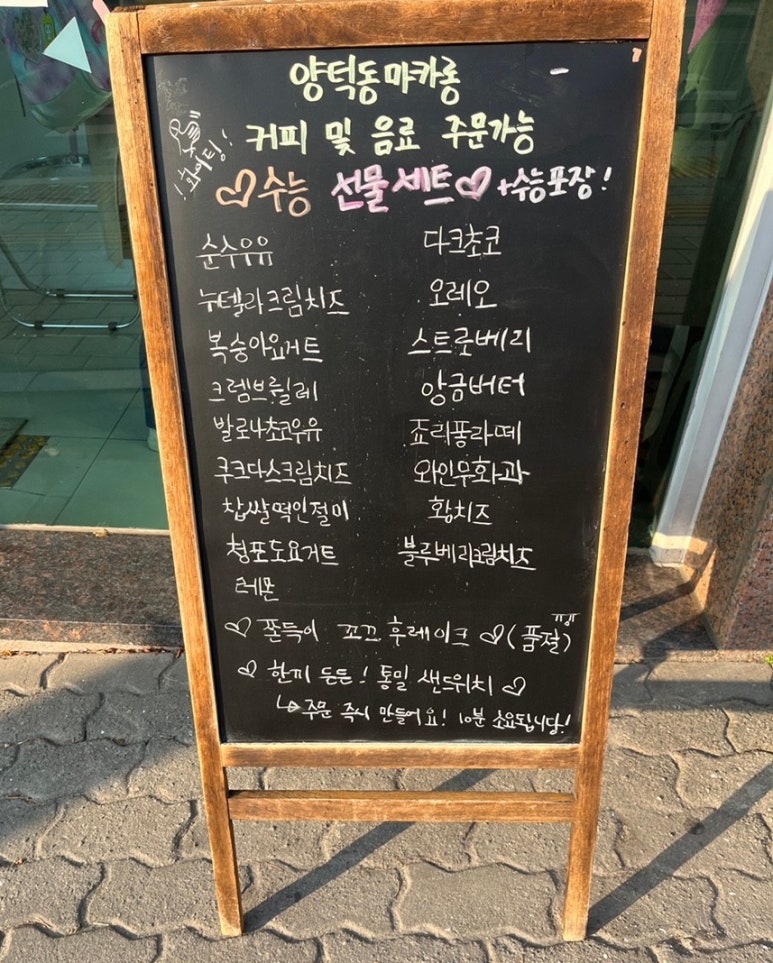 양덕동마카롱
커피 및 음료 주문가능
!화이팅!
♡수능 선물세트♡+수능포장!
순수우유
누텔라크림치즈
복숭아요거트
크렘브륄레
발로나초코우유
쿠크다스크림치즈
찹쌀떡인절미
청포도요거트
레몬
다크초코
오레오
스트로베리
앙금버터
죠리퐁라떼
와인무화과
황치즈
블루베리크림치즈
♡ 쫀득이 꼬끄 후레이크 ♡(품절)ㅠㅠ
♡ 한끼 든든! 통밀 샌드위치 ♡
↳주문 즉시 만들어요! 10분 소요됩니당!